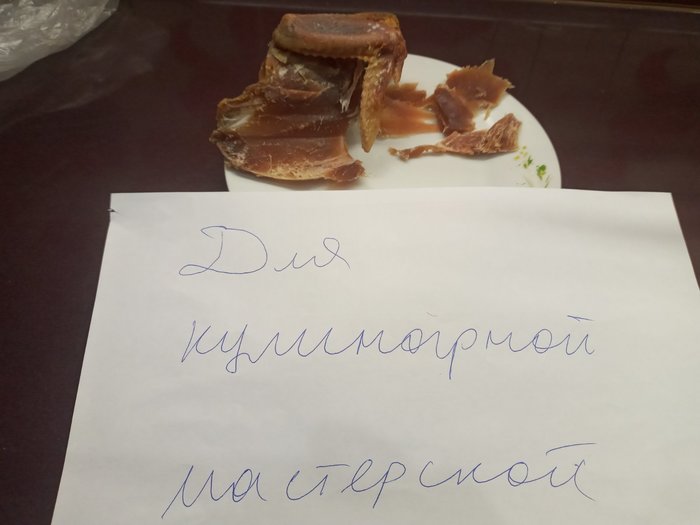 Для
кулинарной
мастерской